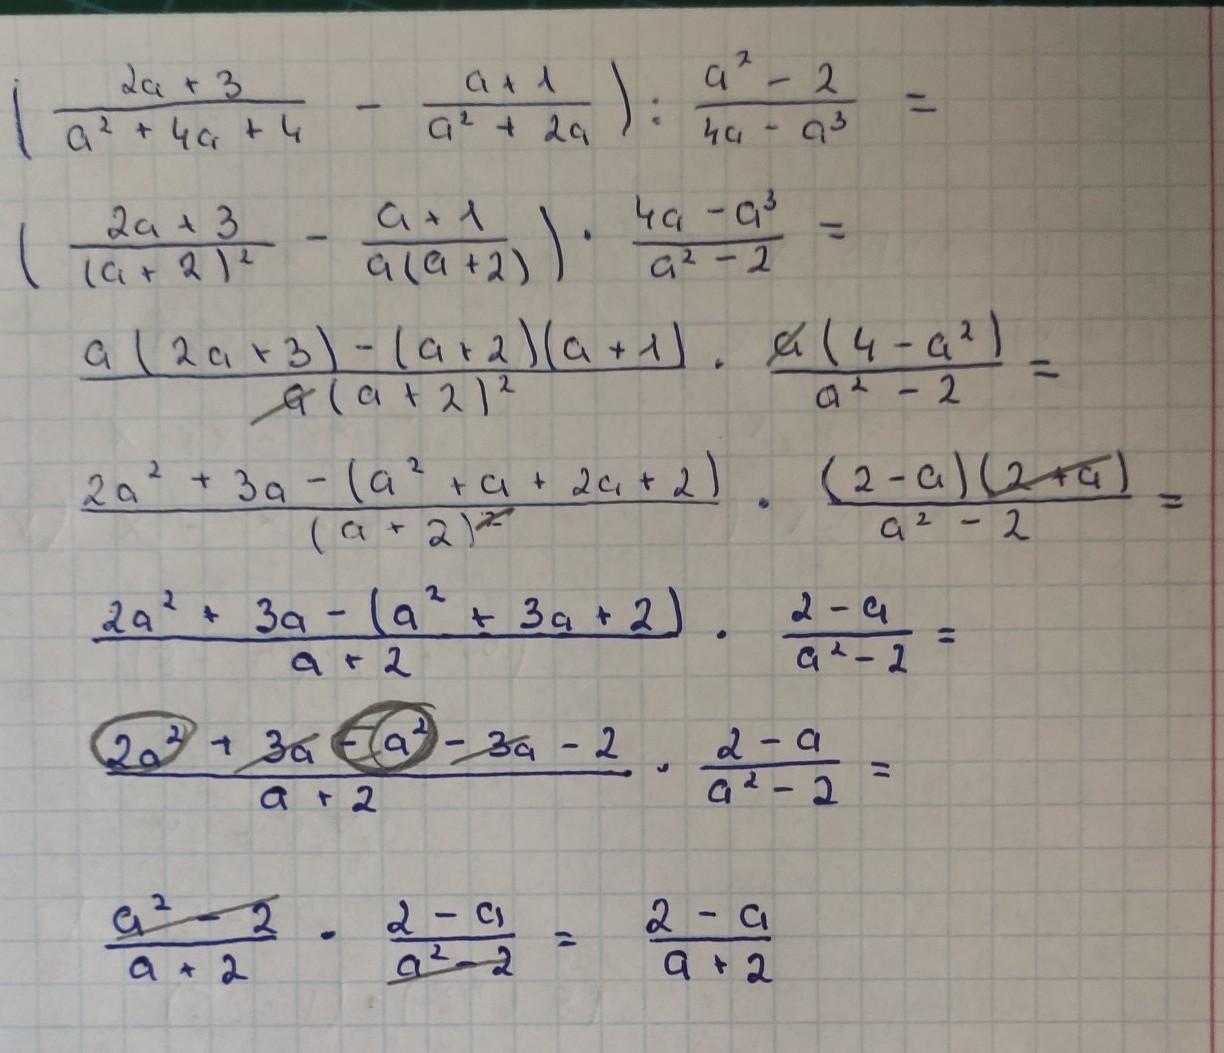 (\frac{2a + 3}{a² + 4a + 4} - \frac{a + 1}{a² + 2a}) : \frac{a² - 2}{4a - a³} =
(\frac{2a + 3}{(a + 2)²} - \frac{a + 1}{a(a + 2)}) · \frac{4a - a³}{a² - 2} =
\frac{a(2a + 3) - (a + 2)(a + 1)}{a(a + 2)²} · \frac{a(4 - a²)}{a² - 2} =
\frac{2a² + 3a - (a² + a + 2a + 2)}{(a + 2)²} · \frac{(2 - a)(2 + a)}{a² - 2} =
\frac{2a² + 3a - (a² + 3a + 2)}{a + 2} · \frac{2 - a}{a² - 2} =
\frac{2a² + 3a - a² - 3a - 2}{a + 2} · \frac{2 - a}{a² - 2} =
\frac{a² - 2}{a + 2} · \frac{2 - a}{a² - 2} = \frac{2 - a}{a + 2}